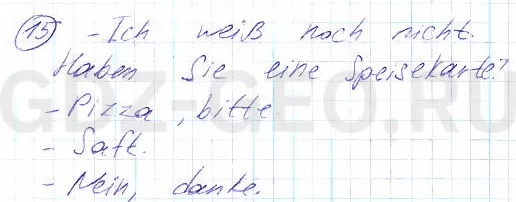 15) - Ich weiß noch nicht.
Haben Sie eine Speisekarte?
GDZ-GEO.RU
- Pizza, bitte.
- Saft.
- Nein, danke.